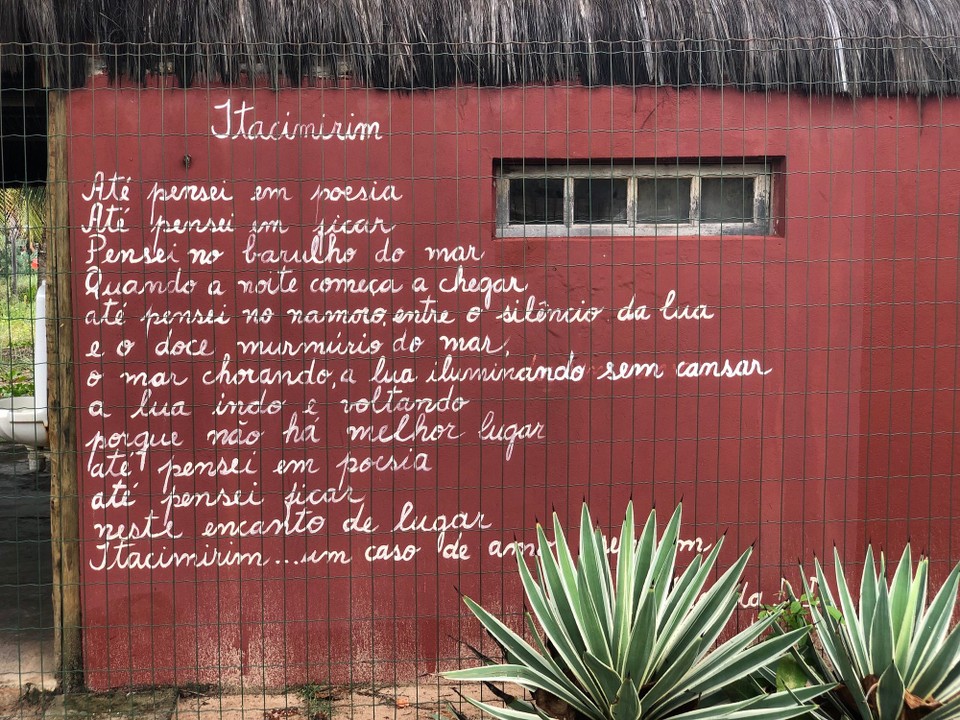 Itacimirim
Até pensei em poesia
Até pensei em ficar
Pensei no barulho do mar
Quando a noite começa a chegar
até pensei no namoro, entre o silêncio da lua
e o doce murmúrio do mar,
o mar chorando, a lua iluminando sem cansar
a lua indo e voltando
porque não há melhor lugar
até pensei em poesia
até pensei ficar
neste encanto de lugar
Itacimirim... um caso de